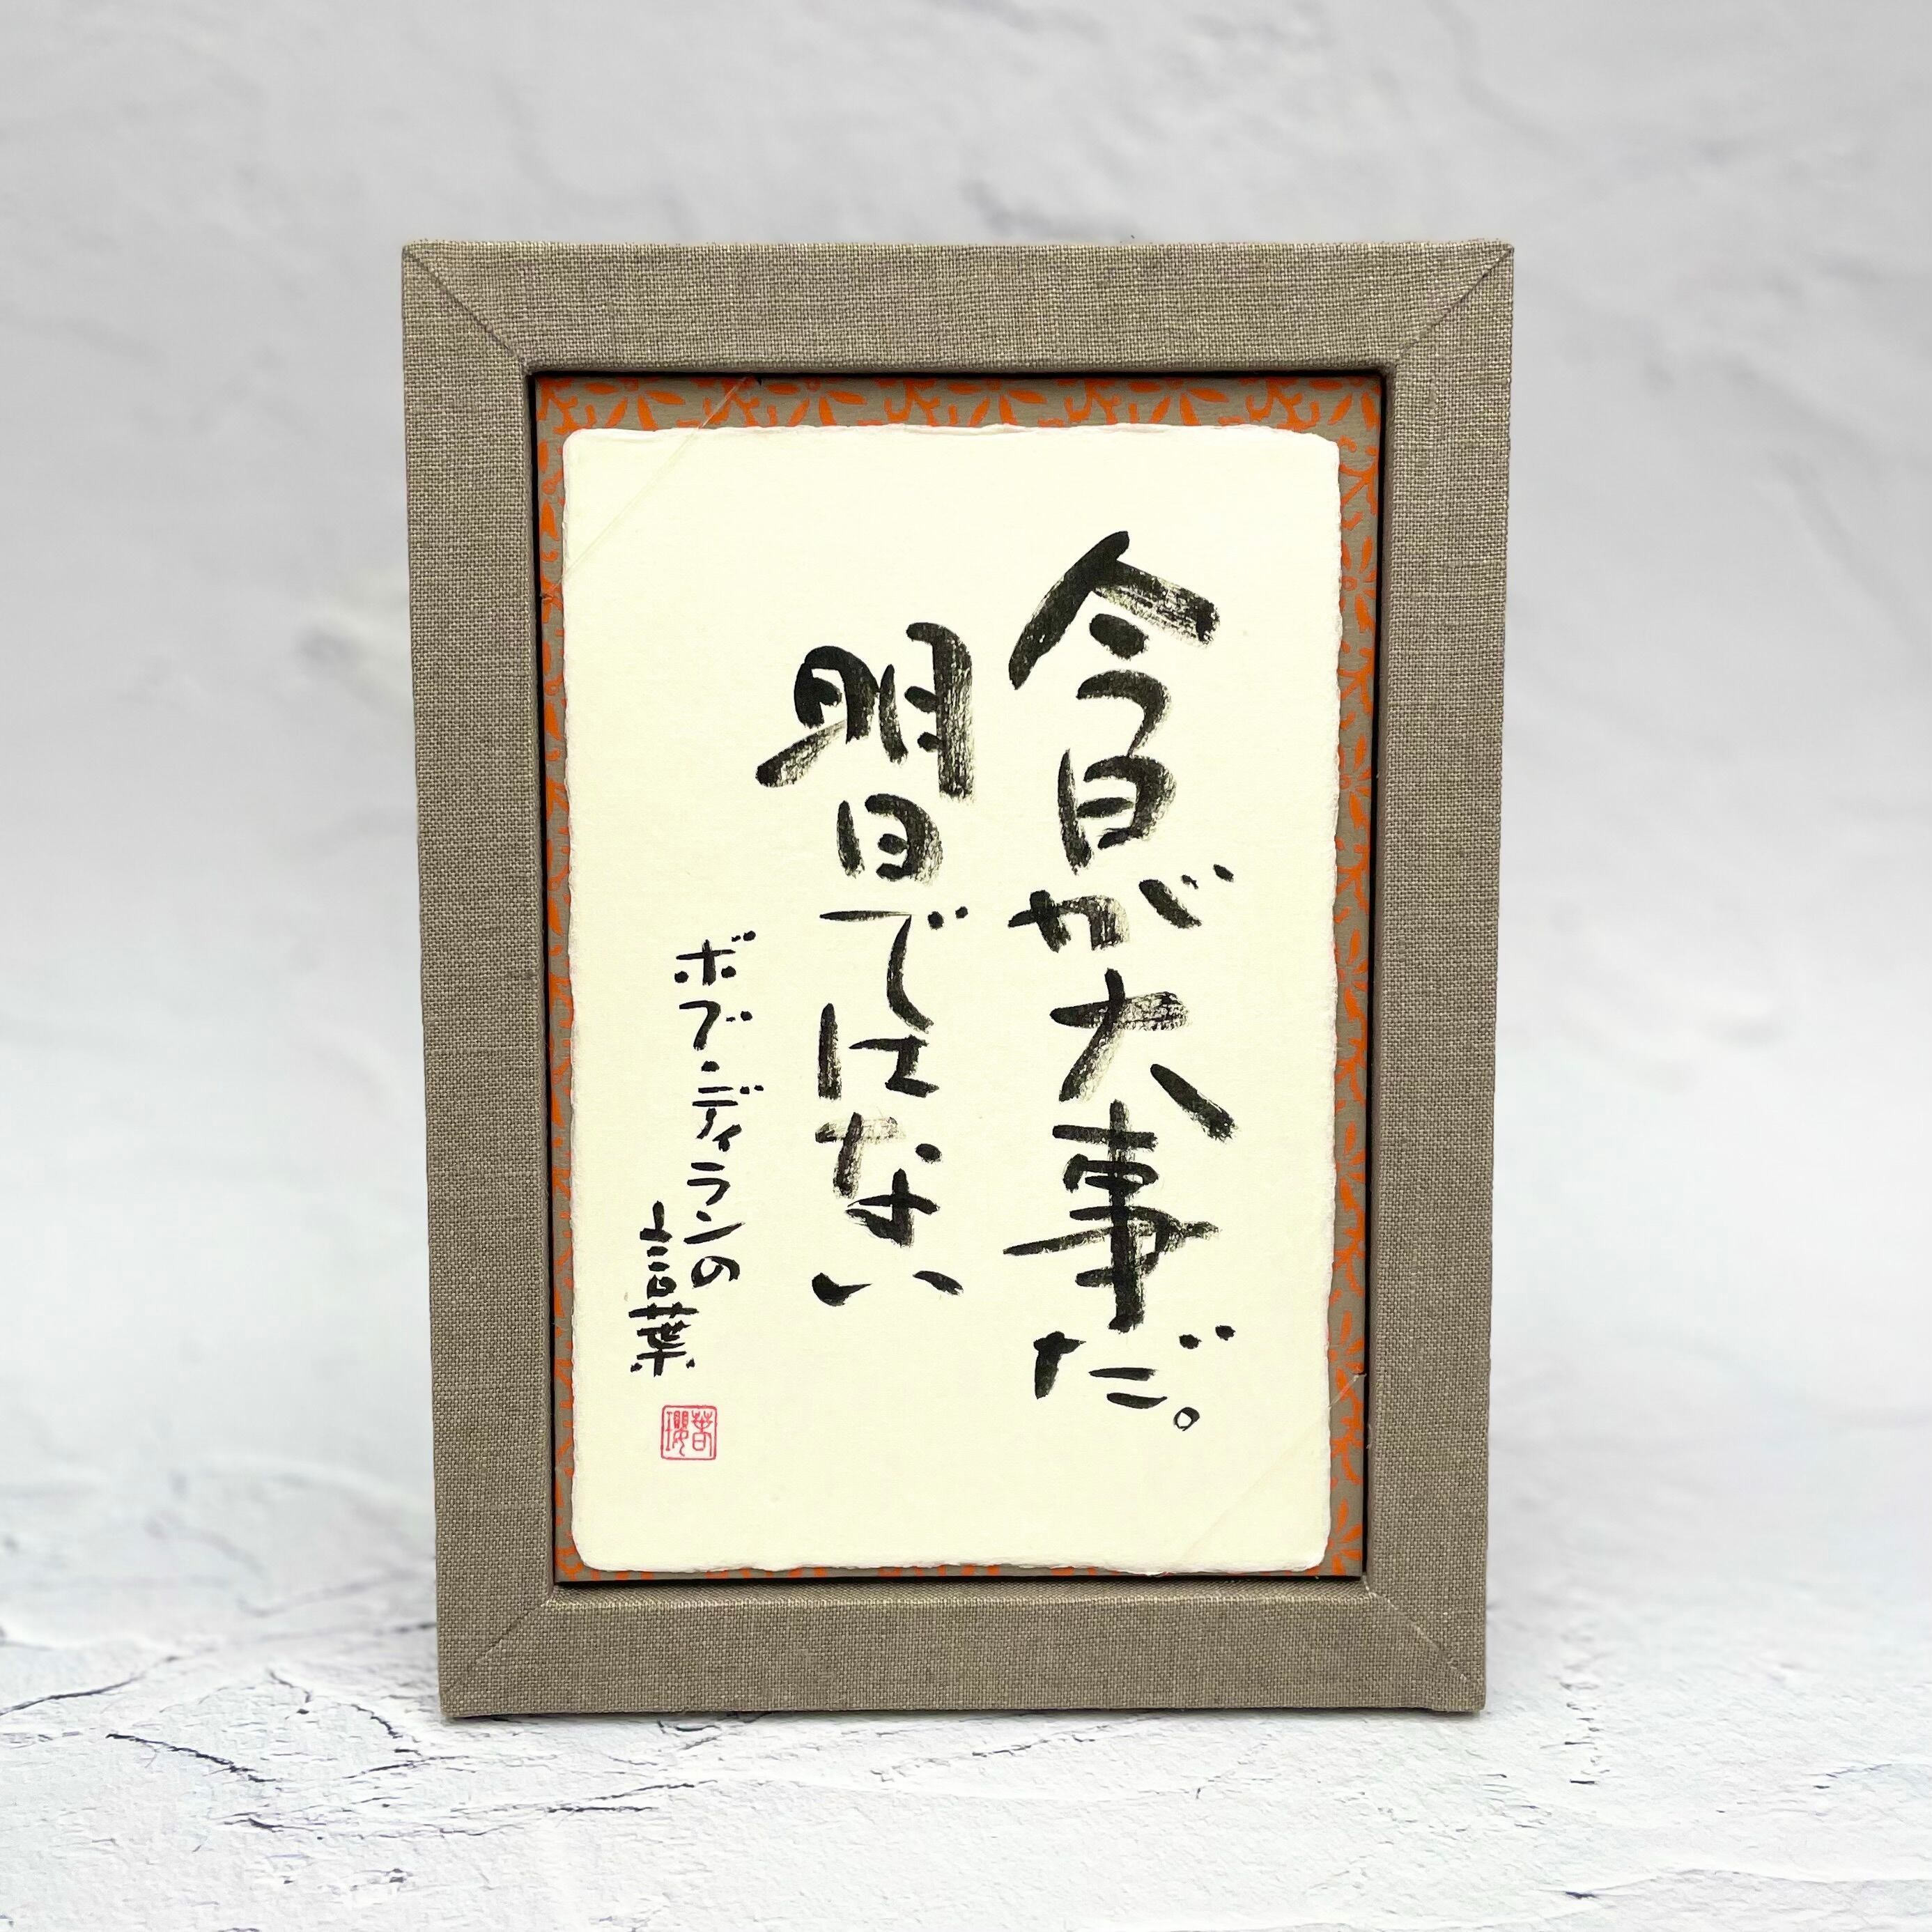 今日が大事だ。
明日ではない
ボブ・ディランの
言葉